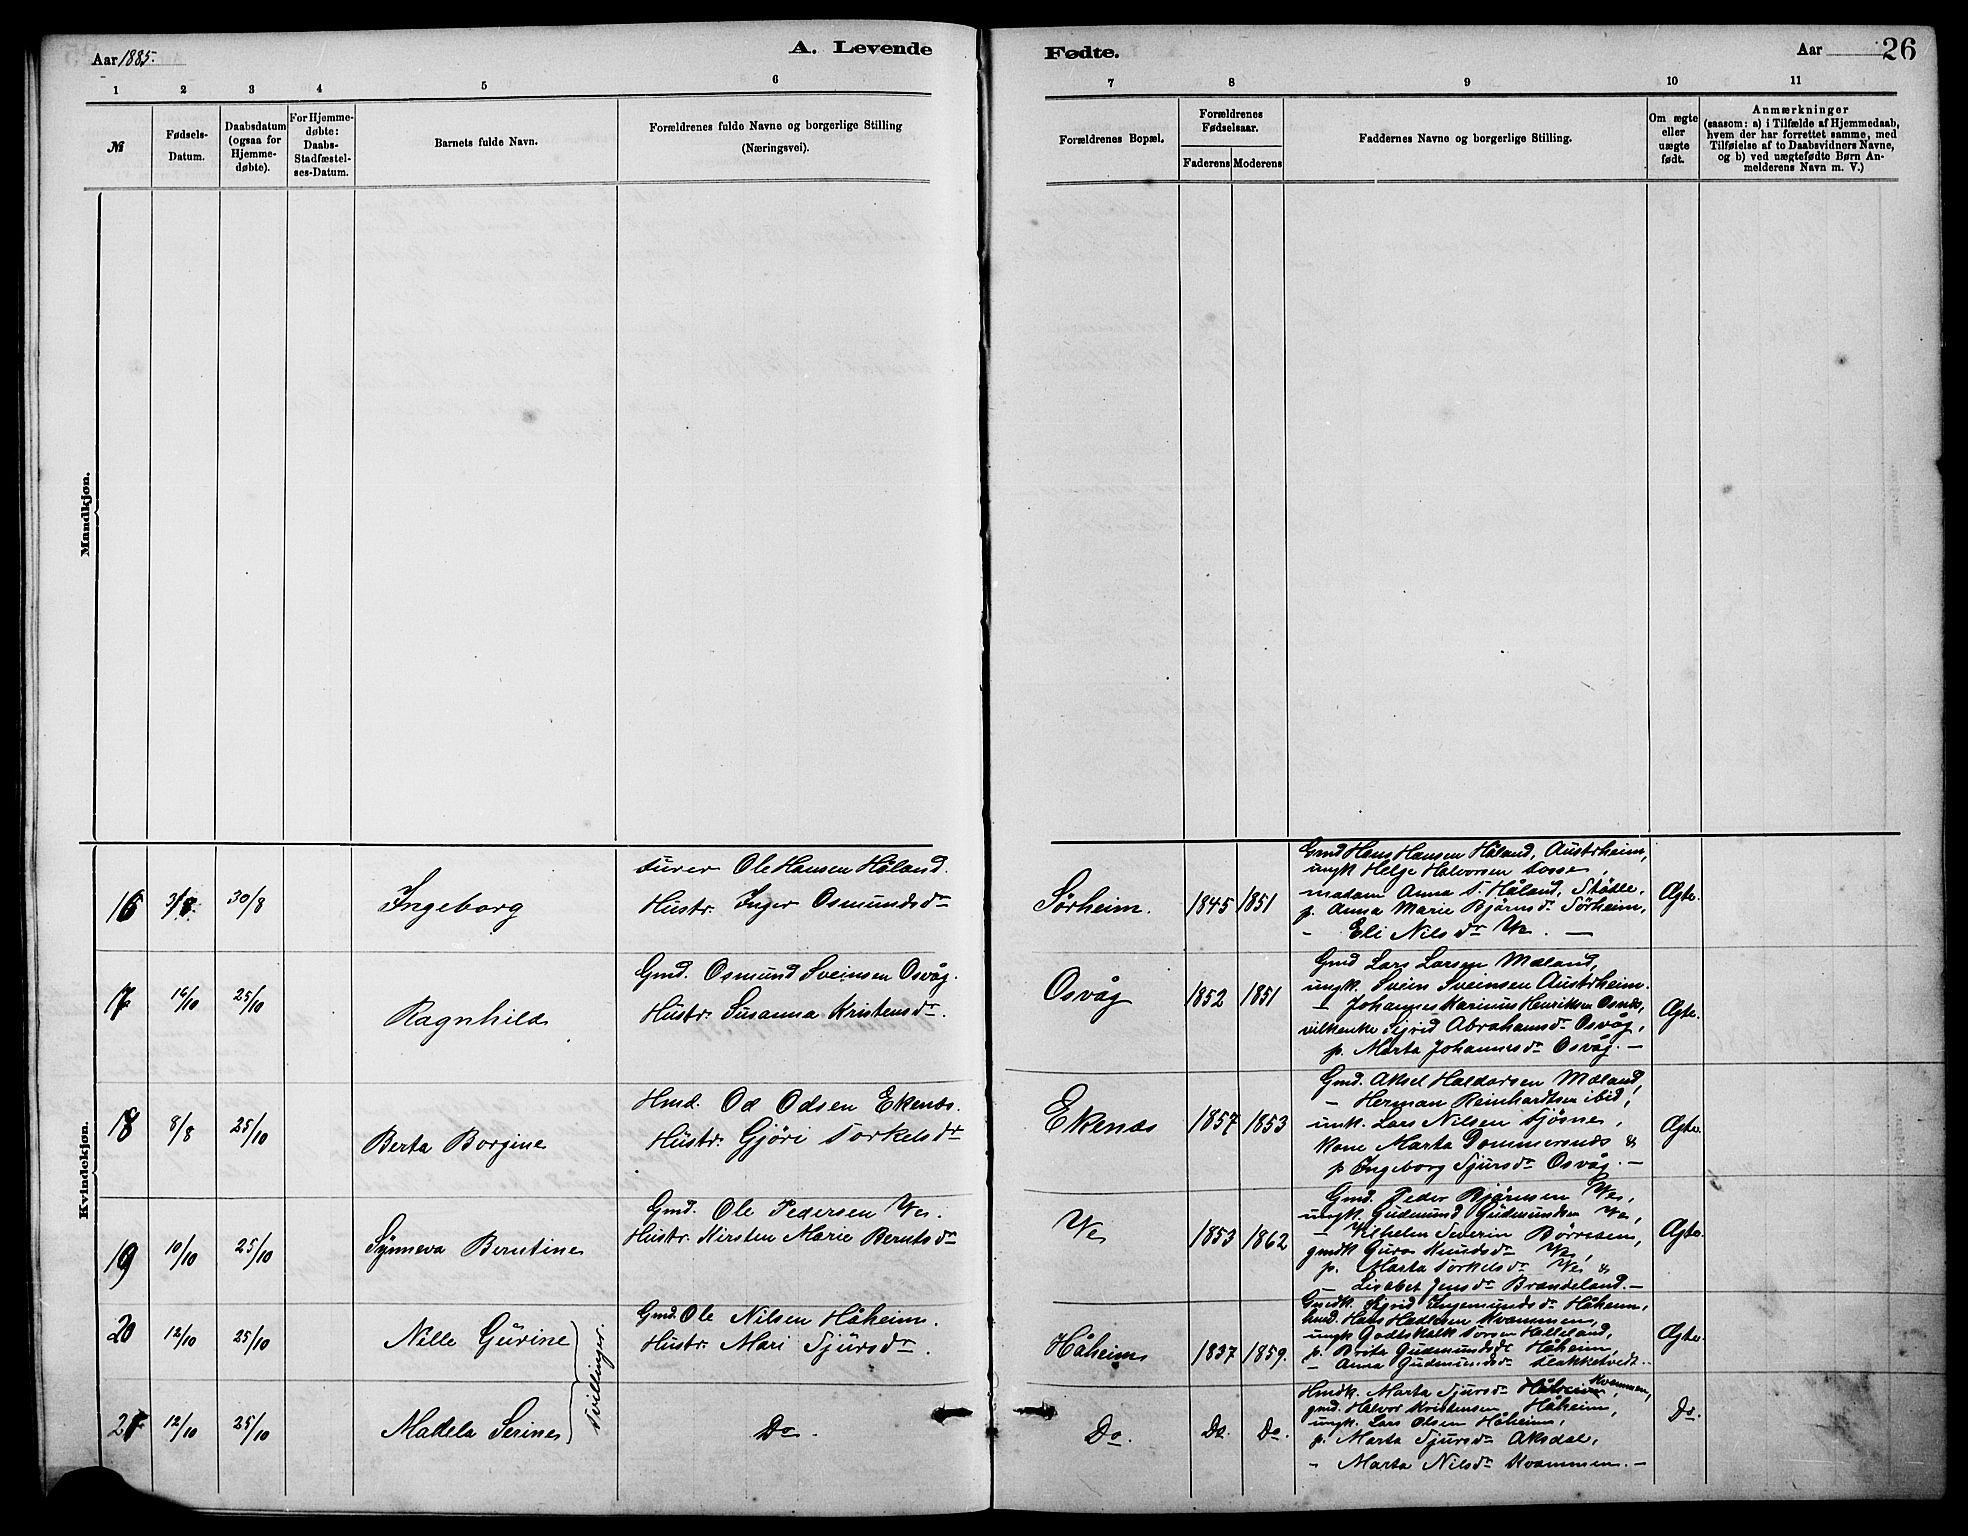 Aar 1885.
A. Levende
Fødte.
Aar
26
1
2
3
4
5
6
7
8
9
10
11
№
Fødsels-
Datum.
Daabsdatum
(ogsaa for
Hjemme-
døbte).
For Hjemme-
døbte:
Daabs-
Stadfæstel-
ses-Datum.
Barnets fulde Navn.
Forældrenes fulde Navne og borgerlige Stilling
(Næringsvei).
Forældrenes Bopæl.
Forældrenes
Fødselsaar.
Faderens
Moderens
Faddernes Navne og borgerlige Stilling.
Om ægte
eller
uægte
født.
Anmærkninger
(saasom: a) i Tilfælde af Hjemmedaab,
hvem der har forrettet samme, med
Tilføielse af to Daabsvidners Navne,
og b) ved uægtefødte Børn An-
melderens Navn m. V.)
Mandkjøn.
Kvindekjøn.
16
3/8
30/8
Ingeborg
Ole Hansen Håland.
Hustr. Inger Osmundsdr
Sørheim.
1845
1851
Gmd Hans Hansen Håland, Austrheim,
ungk Helge Halvorsen
madam Anna T. Håland, Støtle,
p. Anna Marie Bjørnsdr Sørheim,
- Eli Nilsdr We. —
Ægte.
17
16/10
25/10
Ragnhild
Gmd. Osmund Sveinsen Osvåg.
Hustr. Susanna Kristensdr.
Osvåg
1852
1851
Gmd Lars Larsen Mæland,
ungk. Svein Sveinsen Austrheim.
— Johannes Karinius Henriksen Osnes,
Sigrid Abrahamsdr Osvåg,
p. Marta Johannesdr Osvåg. —
Ægte.
18
8/8
25/10
Berta Borgine
Hmd. Od Odsen Ekenæs.
Hustr. Gjøri Torkelsdr
Ekenæs
1857
1853
Gmd. Aksel Haldorsen Mæland,
— Herman Reinhardtsen ibid,
unk. Lars Nilsen Sjøsnes,
Kone Marta Dommersnes &
p Ingeborg Sjursdr Osvåg. —
Ægte.
19
10/10
25/10
Synneva Berntine
Gmd. Ole Pedersen We.
Hustr. Kirsten Marie Berntsdr
We
1853
1862
Gmd. Peder Bjørnsen We,
ungk. Gudmund Gudmundsen We,
— Vilhelm Severin Børresen,
gmdk Guro Knudsdr We,
p. Marta Torkelsdr We &
— Lisabet Jensdr Brandeland. —
Ægte.
20
12/10
25/10
Nille Gurine
Tvillinger.
Gmd. Ole Nilsen Håheim.
Hustr. Mari Sjursdr.
Håheim
1837
1859.
Gmdk. Sigrid Ingemundsdr Håheim,
hmd. Hans Hadlesen Kvammen,
ungk Godtskalk Torsen Helleland,
p. Brita Gudmundsdr Håheim,
— Anna Gudmundsdr Slakketvedt. —
Ægte.
21
12/10
25/10
Madela Serine
Do.
Do.
Do.
Do.
Hmdk. Marta Sjursdr Kvammen,
gmd. Halvor Kristensen Håheim,
ungk. Lars Olsen Håheim,
p. Marta Sjursdr Aksdal,
— Marta Nilsdr Kvammen. —
Do.